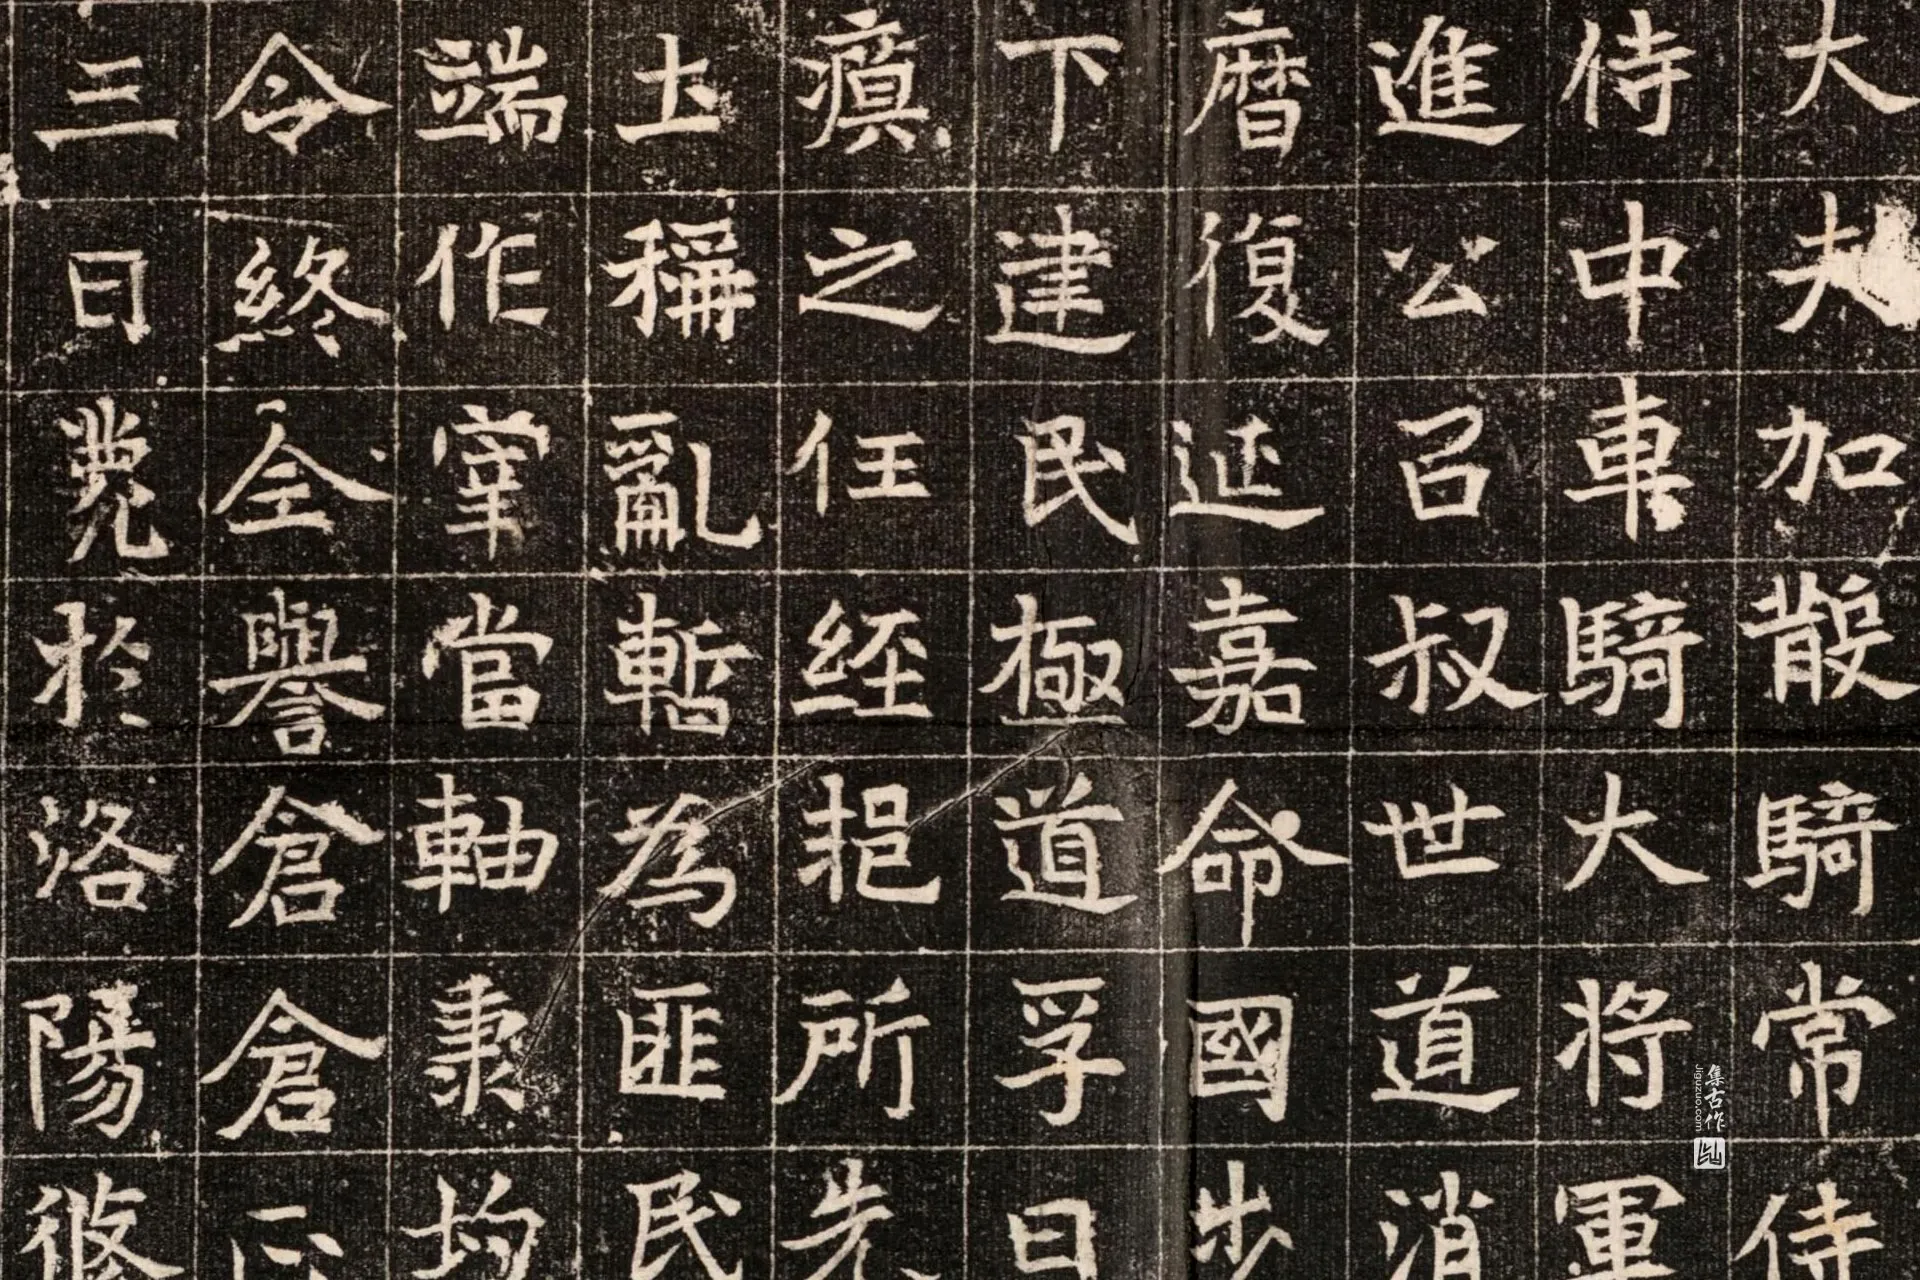 大夫加散騎常侍
侍中車騎大將軍
進公召叔世道消
曆復延嘉命國步
下建民極道孚日
瘼之任經挹所先
土稱亂暫為匪民
端作宰當軸秉均
令終全譽倉倉
三日薨於洛陽
集古作
Jiguzuo.com